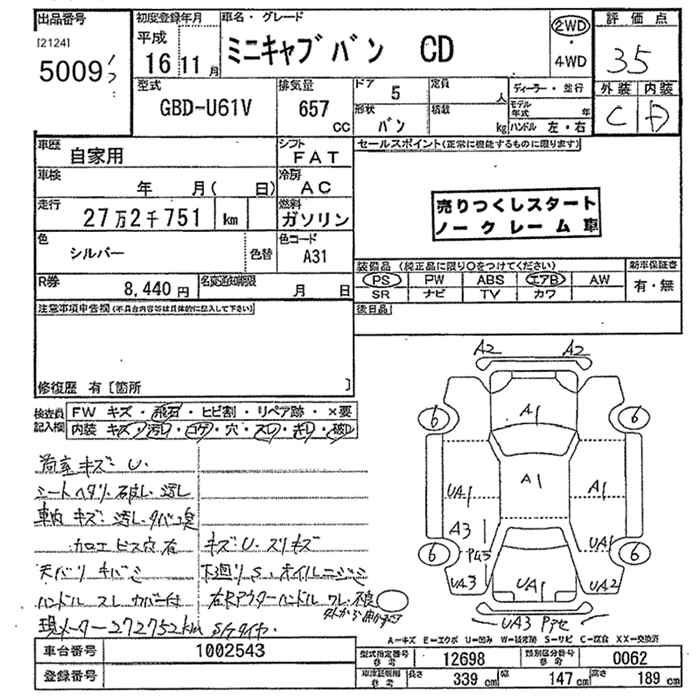 出品番号 初度登録年月 車名・グレード 2WD 評価点
[2124] 平成 ミニキャブバン CD ・ 35
5009 16 11月 4WD
型式 排気量 ドア 5 定員 人 ディーラー・並行 外装 内装
GBD-U61V 657 CC 形状 バン 積載 kg モデル年式 年 C D
ハンドル 左・右
車歴 自家用 シフト FAT セールスポイント(正常に機能するものに限ります)
車検 年 月( 日) 冷房 AC
走行 27万2千751 km 燃料 ガソリン 売りつくしスタート
ノークレーム車
色 シルバー 色替 色コード A31
装備品 (純正品に限り○をつけてください) 新車保証書
R券 8,440円 名変通知期限 月 日 PS PW ABS エアB AW 有・無
SR ナビ TV カワ
注意事項申告欄(不具合内容等は具体的に記入して下さい) 後日品
修復歴 有 [箇所 ]
検査員記入欄 FW キズ・飛石・ヒビ割・リペア跡・×要
内装 キズ・汚れ・コゲ・穴・スレ・キレ・破レ
荷室キズ U.
シートヘタリ・破レ・汚レ
車内 キズ・汚レ・タバコ臭
加工ビス穴有 キズ U. スリキズ
天バリ キバミ 下廻りS. オイルニジミ
ハンドル スレ カバー付 右Rアウターハンドル ワレ・不良
現メーター272752km S/Tタイヤ
A2 A2
6 A1 6
UA1 A1 A1
A3
PU3 UA1
6 UA3 UA1 UA2 6
UA3 Pアセ
A=キズ E=エクボ U=凹み W=補修跡 S=サビ C=腐食 XX=交換済
車台番号 1002543 型式指定番号 参考 12698 類別区分番号 参考 0062
登録番号 長さ 339cm 幅 147cm 高さ 189cm